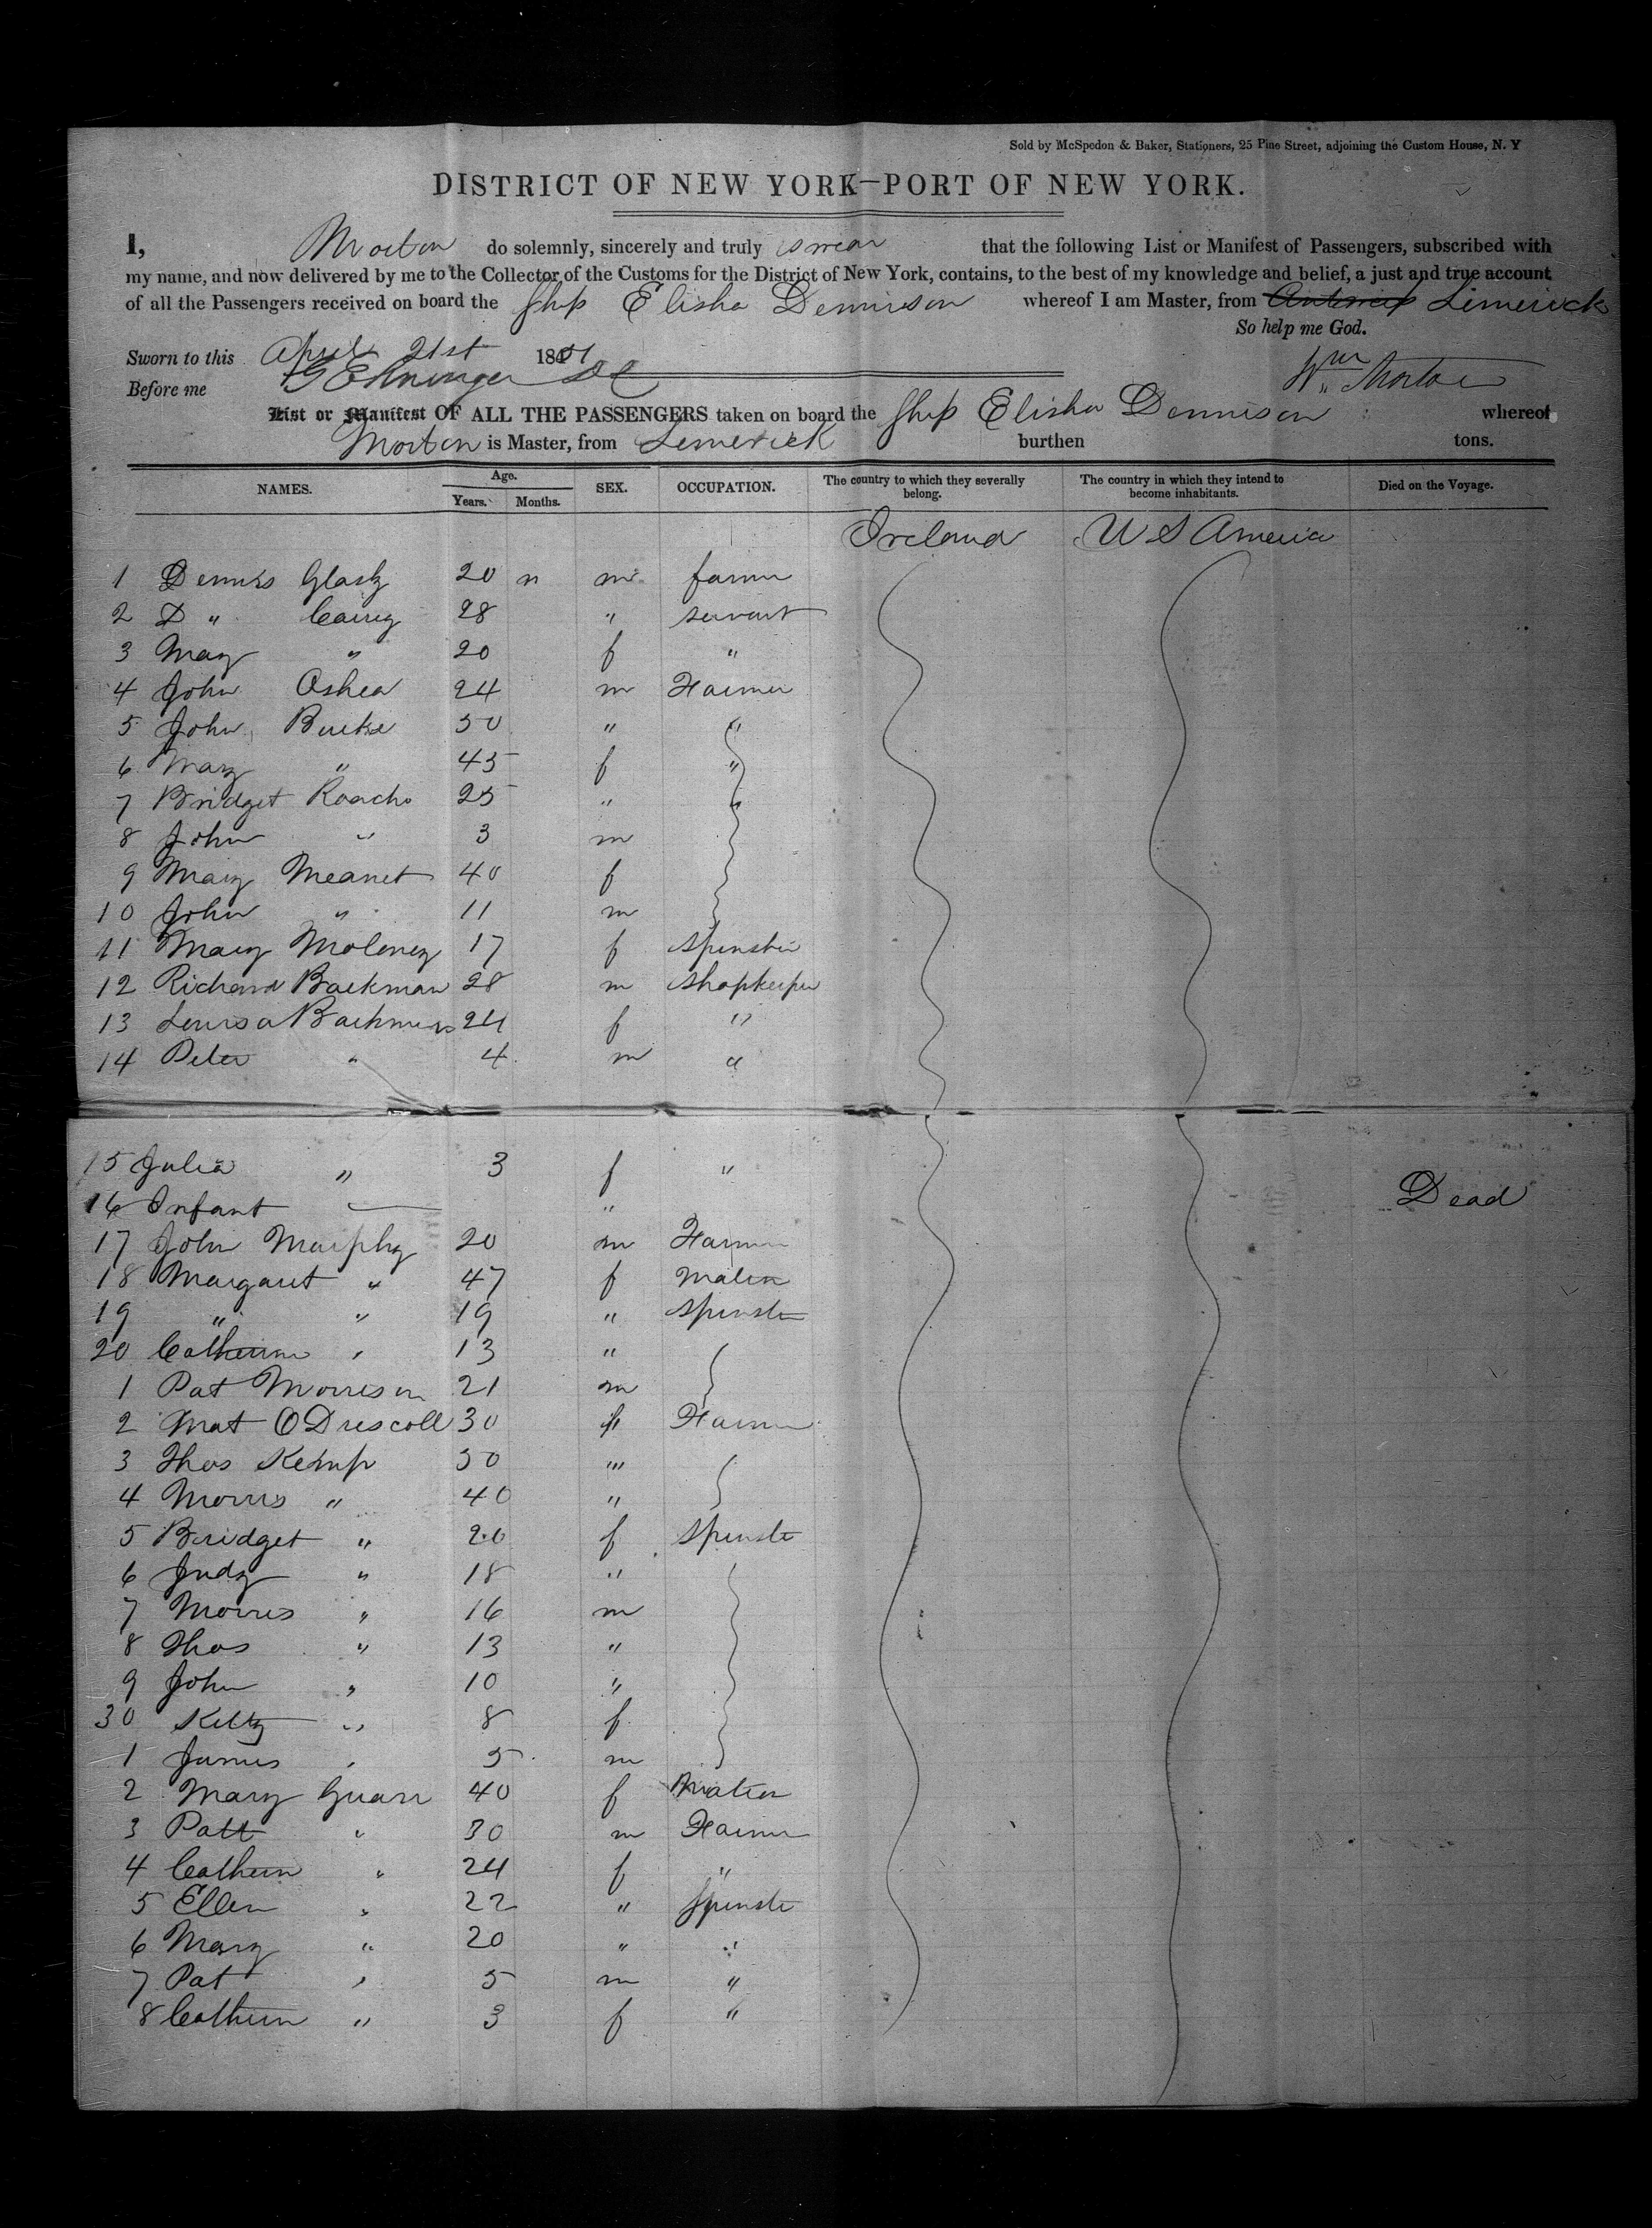 Sold by McSpedon & Baker, Stationers, 25 Pine Street, adjoining the Custom House, N. Y
DISTRICT OF NEW YORK—PORT OF NEW YORK.
I, Morton do solemnly, sincerely and truly swear that the following List or Manifest of Passengers, subscribed with
my name, and now delivered by me to the Collector of the Customs for the District of New York, contains, to the best of my knowledge and belief, a just and true account
of all the Passengers received on board the Ship Elisha Dennison whereof I am Master, from Limerick
So help me God.
Sworn to this April 21st 1851
Before me Wm Morton
List or Manifest OF ALL THE PASSENGERS taken on board the Ship Elisha Dennison whereof
Morton is Master, from Limerick burthen tons.
NAMES. Age. Years. Months. SEX. OCCUPATION. The country to which they severally belong. The country in which they intend to become inhabitants. Died on the Voyage.
Ireland U S America
1 Dennis 20 m farmer
2 D " Carrig 28 " servant
3 Mary " 20 f "
4 John Oshea 24 m Farmer
5 John Burke 50 " "
6 Mary " 45 f "
7 Bridget Roacho 25 " "
8 John " 3 m
9 Mary Meanet 40 f
10 John " 11 m
11 Mary Moloney 17 f Spinster
12 Richard Backman 28 m Shopkeeper
13 Louisa Backman 24 f "
14 Peter " 4 m "
15 Julia " 3 f "
16 Infant " Dead
17 John Murphy 20 m Farmer
18 Margaret " 47 f Matron
19 " " 19 " Spinster
20 Catherine " 13 "
1 Pat Morrison 21 m
2 Mat ODriscoll 30 " Farmer
3 Thos Kemp 50 "
4 Morris " 40 "
5 Bridget " 20 f Spinster
6 Judy " 18 "
7 Morris " 16 m
8 Thos " 13 "
9 John " 10 "
30 Kitty " 8 f
1 James " 5 m
2 Mary Guare 40 f Matron
3 Patt " 30 m Farmer
4 Cathern " 24 f "
5 Ellen " 22 " Spinster
6 Mary " 20 " "
7 Pat " 5 m "
8 Cathern " 3 f "